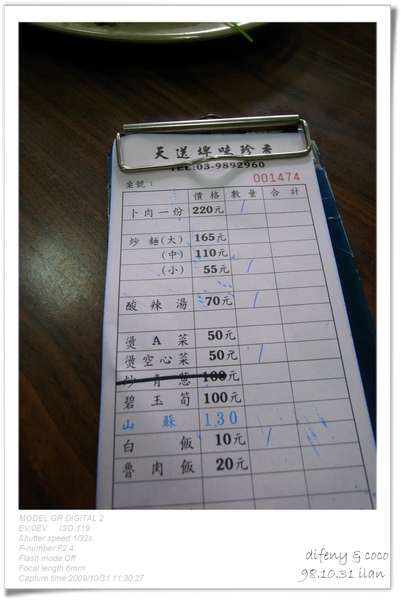 天送埤味珍香
TEL:03-9892960
桌號： 001474
價格 數量 合計
卜肉一份 220元 /
炒麵(大) 165元
(中) 110元
(小) 55元 /
酸辣湯 70元 /
燙A菜 50元
燙空心菜 50元 /
炒青蔥 180元
碧玉筍 100元
山蘇 130
白飯 10元 /
魯肉飯 20元
MODEL:GR DIGITAL 2
EV:0EV ISO:119
Shutter speed:1/32s
F-number:F2.4
Flash mode:Off
Focal length:6mm
Capture time:2009/10/31 11:30:27
difeny & coco
98.10.31 ilan